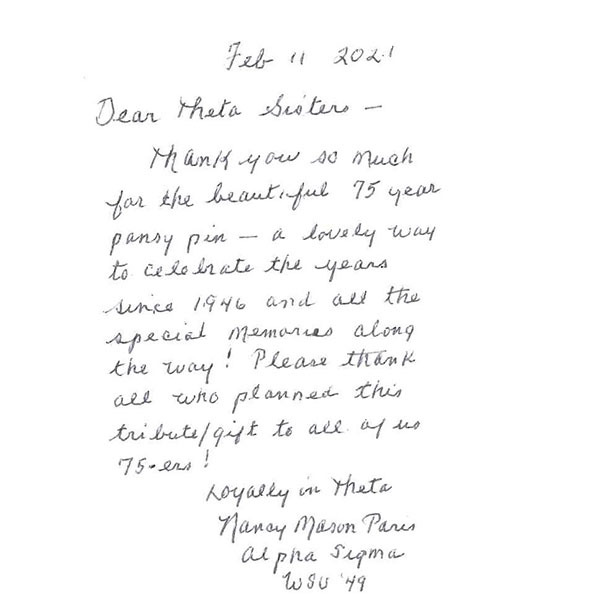 Feb 11 2021
Dear Theta Sisters —
Thank you so much
for the beautiful 75 year
pansy pin — a lovely way
to celebrate the years
since 1946 and all the
special memories along
the way! Please thank
all who planned this
tribute/gift to all of us
75-ers!
Loyally in Theta
Nancy Mason Paris
Alpha Sigma
WSU '49